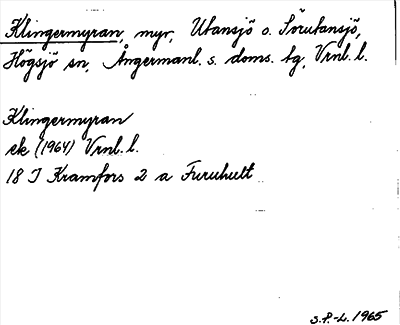 Klingermyran, myr, Utansjö o. Sörutansjö,
Högsjö sn, Ångermanl. s. doms. tg, Vrnl. l.
Klingermyran
ek (1964) Vrnl. l.
18 I Kramfors 2 a Furuhult
S.P.-L. 1965